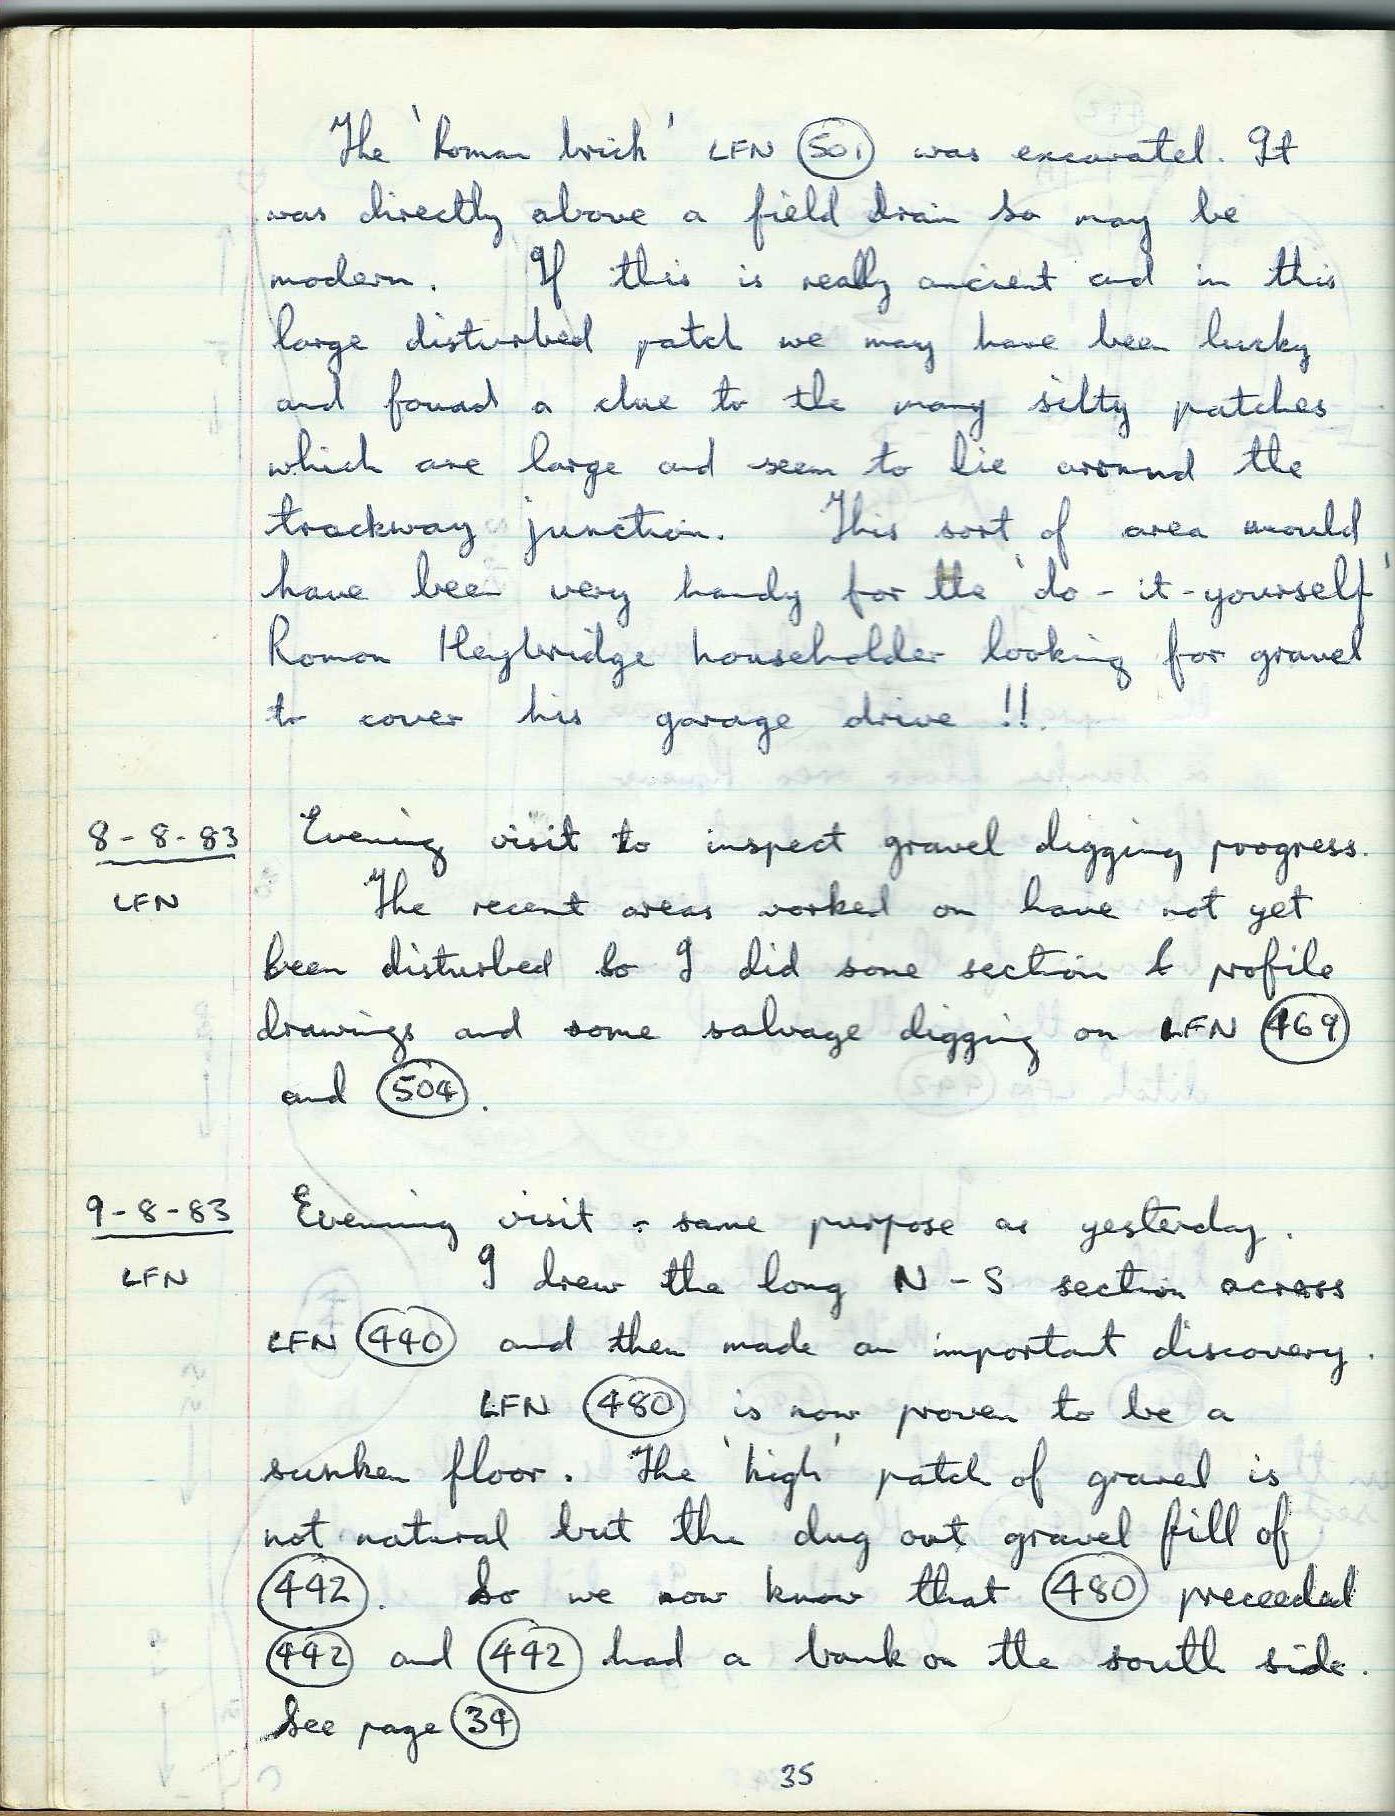 The 'Roman brick' LFN 501 was excavated. It
was directly above a field drain so may be
modern. If this is really ancient and in this
large disturbed patch we may have been lucky
and found a clue to the many silty patches
which are large and seem to lie around the
trackway junction. This sort of area would
have been very handy for the 'do-it-yourself'
Roman Heybridge householder looking for gravel
to cover his garage drive !!
8-8-83 Evening visit to inspect gravel digging progress.
LFN The recent areas worked on have not yet
been disturbed so I did some section & profile
drawings and some salvage digging on LFN 469
and 504.
9-8-83 Evening visit - same purpose as yesterday.
LFN I drew the long N-S section across
LFN 440 and then made an important discovery.
LFN 480 is now proven to be a
sunken floor. The 'high' patch of gravel is
not natural but the dug out gravel fill of
442. So we now know that 480 preceeded
442 and 442 had a bank on the south side.
See page 34
35